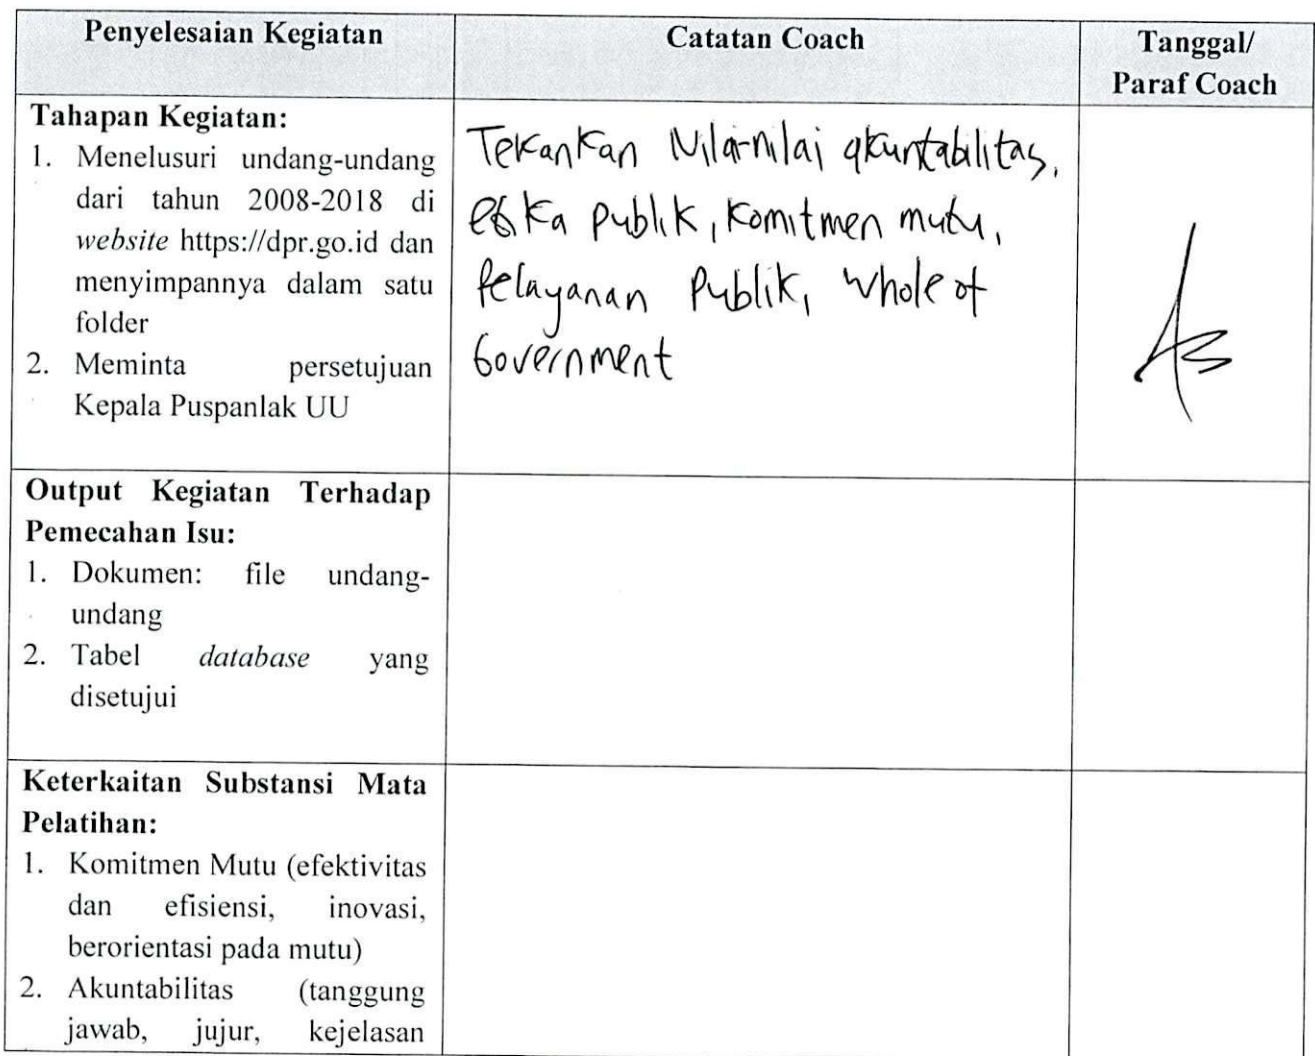 Penyelesaian Kegiatan
Catatan Coach
Tanggal/
Paraf Coach
Tahapan Kegiatan:
1. Menelusuri undang-undang
dari tahun 2008-2018 di
website https://dpr.go.id dan
menyimpannya dalam satu
folder
2. Meminta persetujuan
Kepala Puspanlak UU
Tekankan Nilai-nilai akuntabilitas,
etika publik, komitmen mutu,
Pelayanan Publik, Whole of
Government
Output Kegiatan Terhadap
Pemecahan Isu:
1. Dokumen: file undang-
undang
2. Tabel database yang
disetujui
Keterkaitan Substansi Mata
Pelatihan:
1. Komitmen Mutu (efektivitas
dan efisiensi, inovasi,
berorientasi pada mutu)
2. Akuntabilitas (tanggung
jawab, jujur, kejelasan